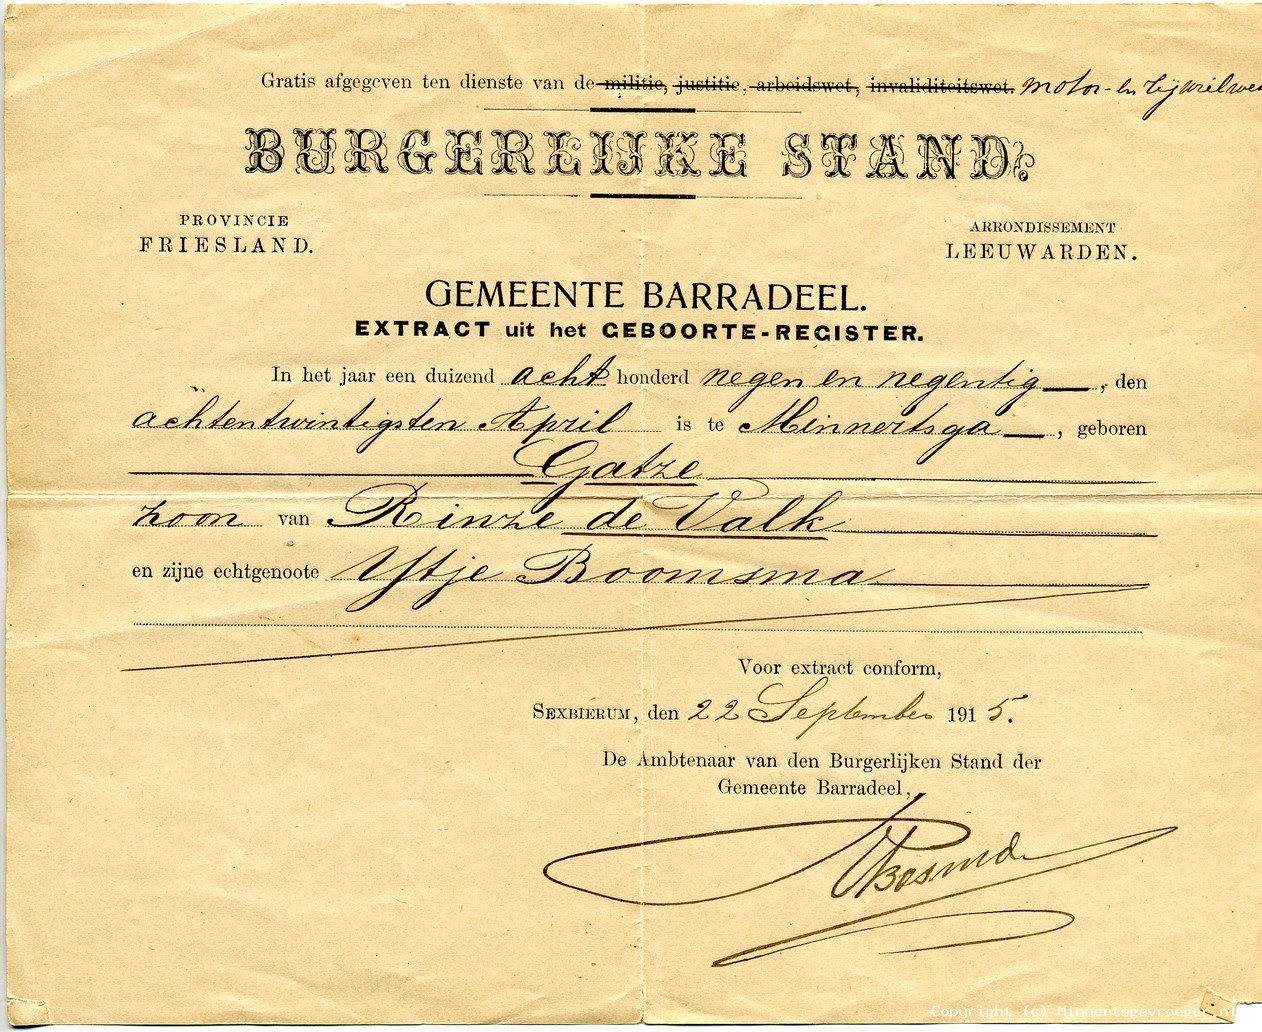 Gratis afgegeven ten dienste van de militie, justitie, arbeidswet, invaliditeitswet. motor- en rijwielwet
BURGERLIJKE STAND.
PROVINCIE
FRIESLAND.
ARRONDISSEMENT
LEEUWARDEN.
GEMEENTE BARRADEEL.
EXTRACT uit het GEBOORTE-REGISTER.
In het jaar een duizend acht honderd negen en negentig, den
achtentwintigsten April is te Minnertsga, geboren
Gatze
zoon van Rinze de Valk
en zijne echtgenoote Ytje Boomsma
Voor extract conform,
SEXBIERUM, den 22 September 1915.
De Ambtenaar van den Burgerlijken Stand der
Gemeente Barradeel,
Copyright (c) Minnertsgavroeger.nl